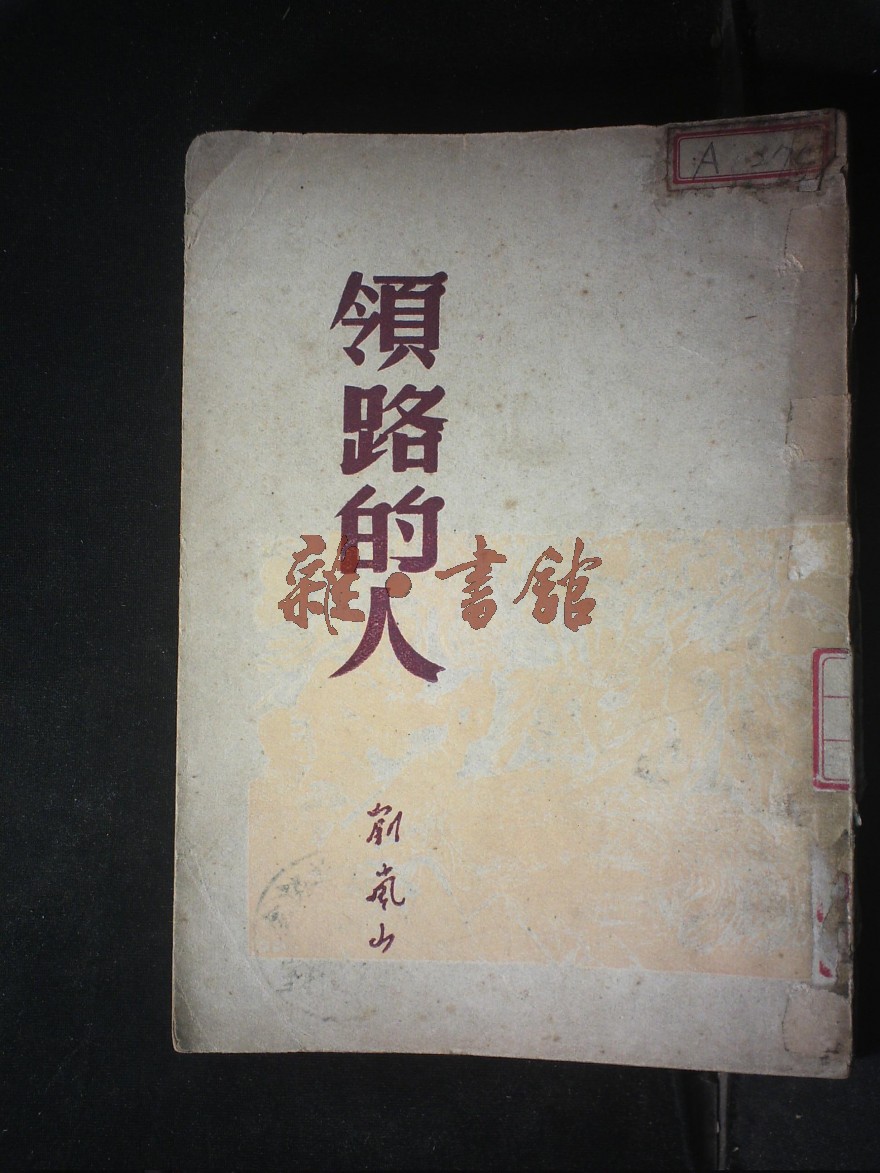 領路的人
雜·書館
劉嵐山
A